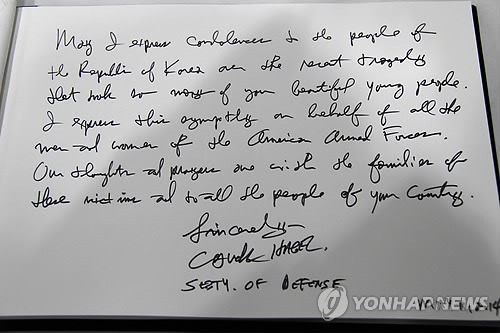 May I express condolences to the people of
the Republic of Korea over the recent tragedy
that took so many of your beautiful young people.
I express this sympathy on behalf of all the
men and women of the America Armed Forces.
Our thoughts and prayers are with the families of
these victims and to all the people of your country.
Sincerely
Chuck Hagel
SECTY. OF DEFENSE
YONHAPNEWS